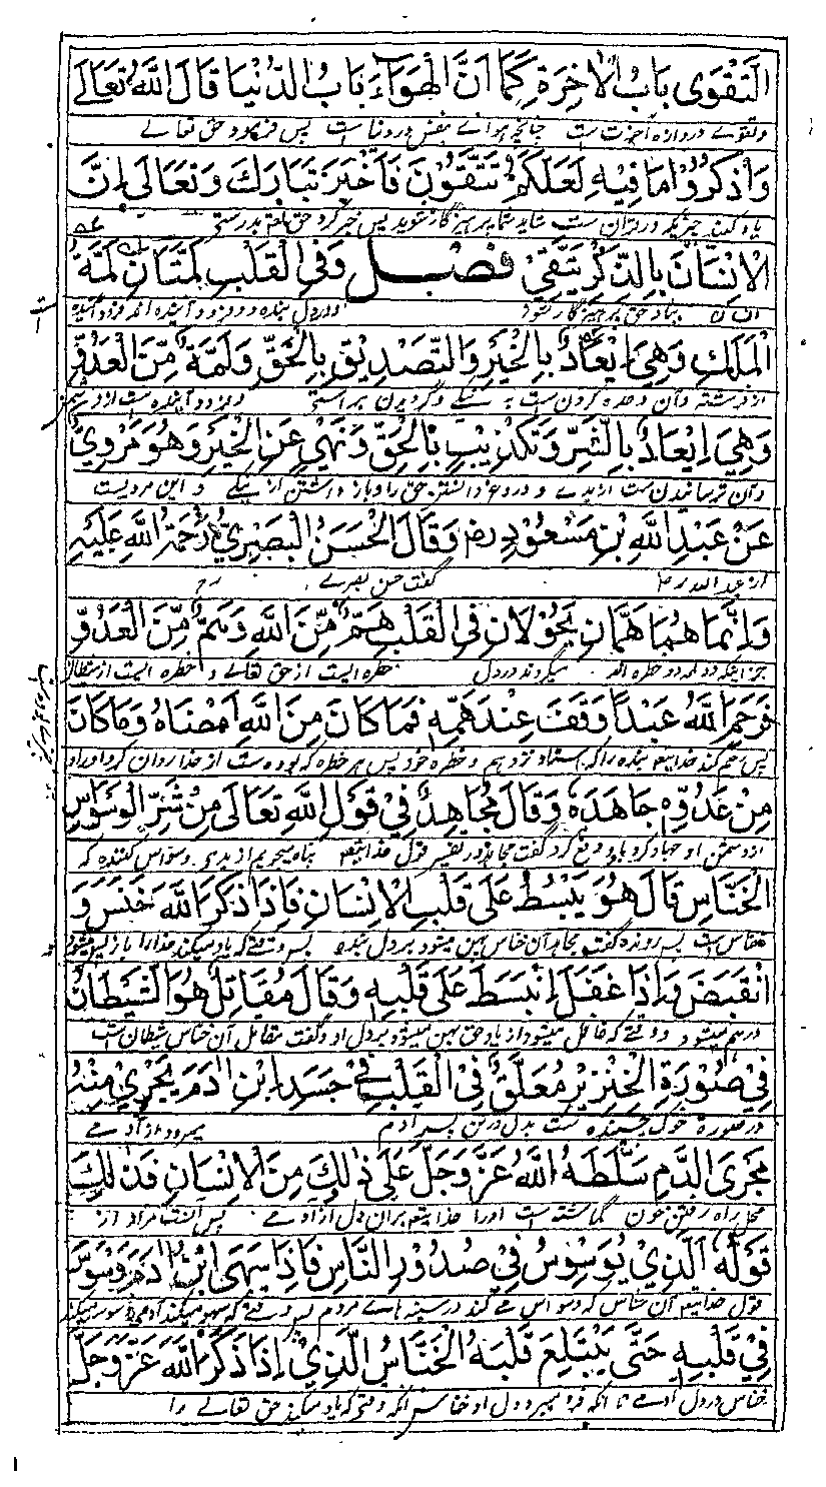 التَّقْوَى بَابُ الْاٰخِرَةِ كَمَا اَنَّ الْهَوَاءَ بَابُ الدُّنْيَا قَالَ اللّٰهُ تَعَالٰے
وتقوے دروازه آخرت است چنانچه هوائے نفس در دنیا است پس فرمود حق تعالے
وَاذْكُرُوْا مَا فِيْهِ لَعَلَّكُمْ تَتَّقُوْنَ فَاَخْبَرَ تَبَارَكَ وَتَعَالٰى اِنَّ
یاد کنید چیزیکه در قران ست شاید شما پرهیزگار شوید پس خبر کرد حق بدرستی
الْاِنْسَانَ بِالذِّكْرِ يَتَّقِيْ فصل وَفِي الْقَلْبِ لَمَّتَانِ لَمَّةُ
بیاد حق پرهیزگار شود و در دل بنده دو فرود آینده اند فرود آینده است
الْمَلَكِ وَهِيَ اِيْعَادٌ بِالْخَيْرِ وَالتَّصْدِيْقِ بِالْحَقِّ وَلَمَّةٌ مِّنَ الْعَدُوِّ
از فرشته وآن وعده کردن ست به نیکے وگرویدن براستی وفرود آینده ست از دشمن
وَهِيَ اِيْعَادٌ بِالشَّرِّ وَتَكْذِيْبٍ بِالْحَقِّ وَنَهْيٍ عَنِ الْخَيْرِ وَهُوَ مَرْوِيٌّ
وآن ترسانیدن ست از بدے و دروغ دانستن حق را وباز داشتن از نیکے و این مرویست
عَنْ عَبْدِ اللّٰهِ بْنِ مَسْعُوْدٍ رض وَقَالَ الْحَسَنُ الْبَصْرِيُّ رَحْمَةُ اللّٰهِ عَلَيْهِ
از عبد الله رض گفت حسن بصرے رح
وَاِنَّمَا هُمَا هَمَّانِ يَجُوْلَانِ فِي الْقَلْبِ هَمٌّ مِّنَ اللّٰهِ وَهَمٌّ مِّنَ الْعَدُوِّ
جز اینکه دو خطره اند میگردند در دل خطره ایست از حق تعالے و خطره ایست از شیطان
فَرَحِمَ اللّٰهُ عَبْدًا وَقَفَ عِنْدَ هَمِّهٖ فَمَا كَانَ مِنَ اللّٰهِ اَمْضَاهُ وَمَا كَانَ
پس رحم کند خدایتعالی بنده را که استاد نزد هم و خطره خود پس هر خطره که بوده ست از خدا روان کرد اورا و
مِنْ عَدُوِّهٖ جَاهَدَهٗ وَقَالَ مُجَاهِدٌ فِيْ قَوْلِ اللّٰهِ تَعَالٰى مِنْ شَرِّ الْوَسْوَاسِ
از دشمن او جهاد کرد با و دفع کرد گفت مجاهد در تفسیر قول خدایتعالی پناه میجویم از بدی وسواس کننده که
الْخَنَّاسِ قَالَ هُوَ يَبْسُطُ عَلٰى قَلْبِ الْاِنْسَانِ فَاِذَا ذَكَرَ اللّٰهَ خَنَسَ وَ
خناس است پس رونده گفت مجاهد آن خناس پهن میشود بر دل بنده پس وقتے که یاد میکند خدا را باز پس میشود
انْقَبَضَ وَاِذَا غَفَلَ اِنْبَسَطَ عَلٰى قَلْبِهٖ وَقَالَ مُقَاتِلٌ هُوَ الشَّيْطَانُ
در هم میشود و وقتے که غافل میشود از یاد حق پهن میشود بر دل او وگفت مقاتل آن خناس شیطان است
فِيْ صُوْرَةِ الْخِنْزِيْرِ مُعَلَّقٌ فِي الْقَلْبِ فِيْ جَسَدِ ابْنِ اٰدَمَ يَجْرِيْ مِنْهُ
در صورة خوک چسپنده ست بدل در تن پسر آدم میرود از آدمے
مَجْرَى الدَّمِ سَلَّطَهُ اللّٰهُ عَزَّ وَجَلَّ عَلٰى ذٰلِكَ مِنَ الْاِنْسَانِ فَذٰلِكَ
محل راه رفتن خون گماشته است اورا خدایتعالی بران دل از آدمے پس آنست مراد از
قَوْلُهٗ الَّذِيْ يُوَسْوِسُ فِيْ صُدُوْرِ النَّاسِ فَاِذَا سَهَى ابْنُ اٰدَمَ وَسْوَسَ
قول خدایتعالی آن خناس که وسواس مے کند در سینه هاے مردم پس وقتے که سهو میکند آدمی وسوسه میکند
فِيْ قَلْبِهٖ حَتّٰى يَبْتَلِعَ قَلْبَهُ الْخَنَّاسُ الَّذِيْ اِذَا ذَكَرَ اللّٰهَ عَزَّ وَجَلَّ
خناس در دل آدمے تا آنکه فرو میبرد دل او خناس آنکه وقتی که یاد میکند حق تعالے را